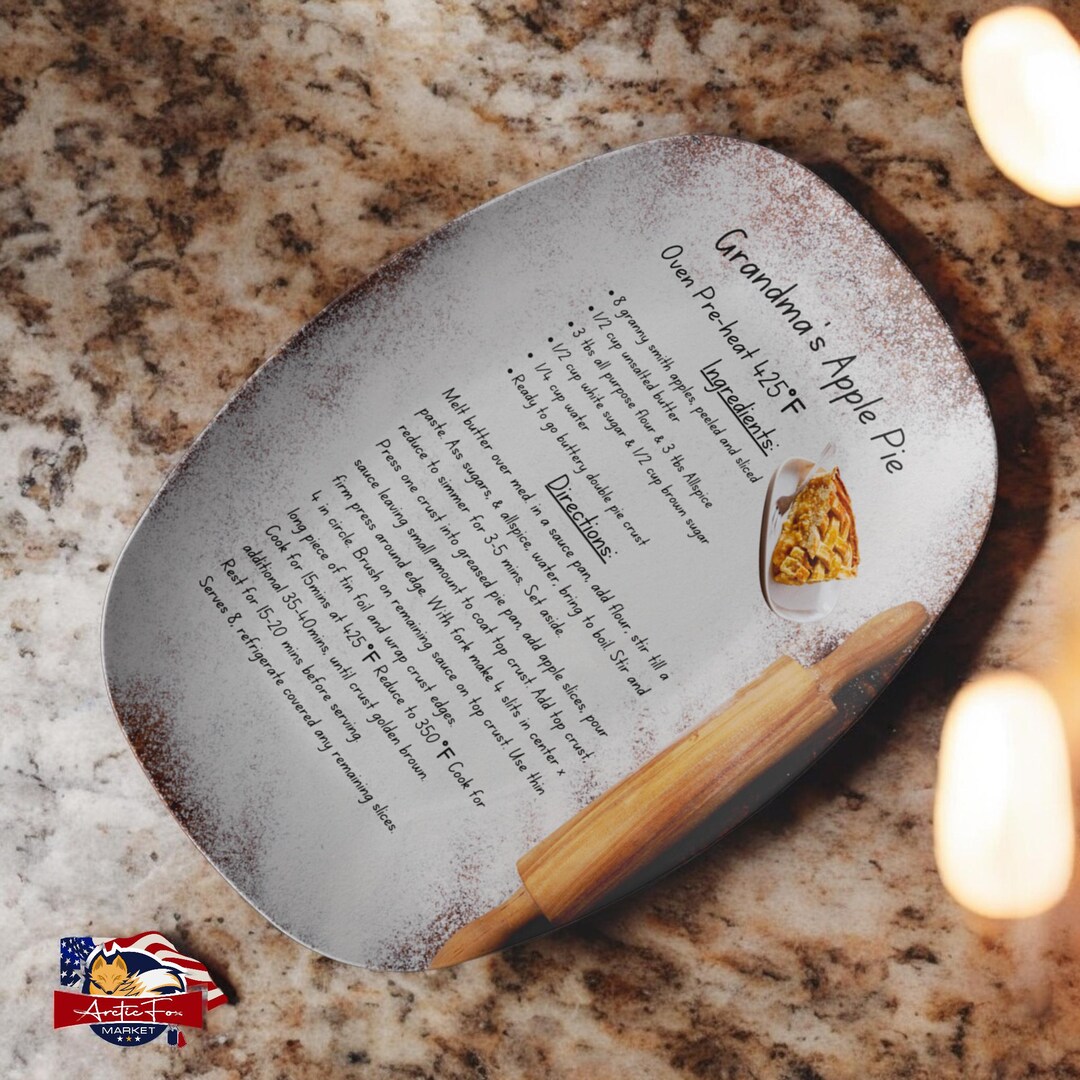 Grandma's Apple Pie
Oven Pre-heat 425°F
Ingredients:
• 8 granny smith apples, peeled and sliced
• 1/2 cup unsalted butter
• 3 tbs all purpose flour & 3 tbs Allspice
• 1/2 cup white sugar & 1/2 cup brown sugar
• 1/4 cup water
• Ready to go buttery double pie crust
Directions:
Melt butter over med. in a sauce pan, add flour, stir till a
paste. Ass sugars, & allspice, water, bring to boil. Stir and
reduce to simmer for 3-5 mins. Set aside.
Press one crust into greased pie pan, add apple slices, pour
sauce leaving small amount to coat top crust. Add top crust,
firm press around edge. With fork make 4 slits in center x
4 in circle. Brush on remaining sauce on top crust. Use thin
long piece of tin foil and wrap crust edges.
Cook for 15mins at 425°F Reduce to 350°F Cook for
additional 35-40mins, until crust golden brown.
Rest for 15-20 mins before serving.
Serves 8, refrigerate covered any remaining slices.
Arctic Fox
MARKET